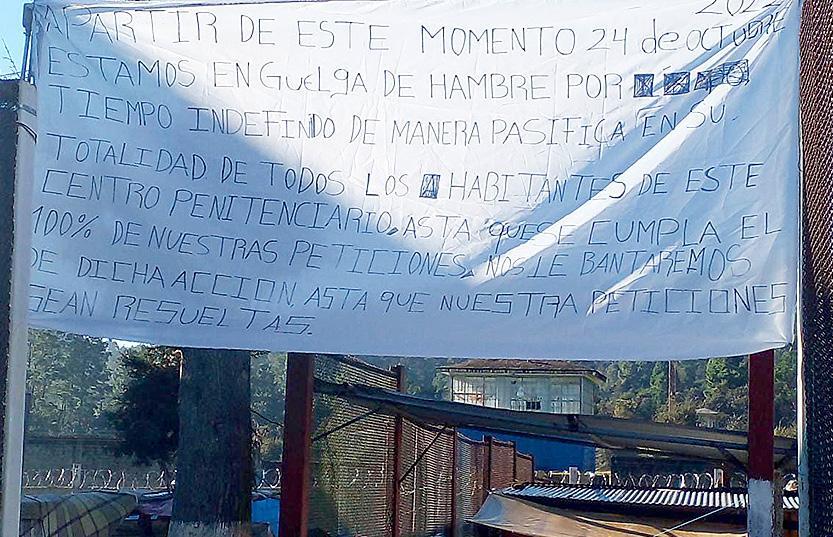 APARTIR DE ESTE MOMENTO 24 de OCTUBRE
ESTAMOS EN GUELGA DE HAMBRE POR
TIEMPO INDEFINDO DE MANERA PASIFICA EN SU.
TOTALIDAD DE TODOS LOS HABITANTES DE ESTE
CENTRO PENITENCIARIO. ASTA QUE SE CUMPLA EL
100% DE NUESTRAS PETICIONES. NOS LE BANTAREMOS
DE DICHA ACCION. ASTA QUE NUESTRA PETICIONES
SEAN RESUELTAS.